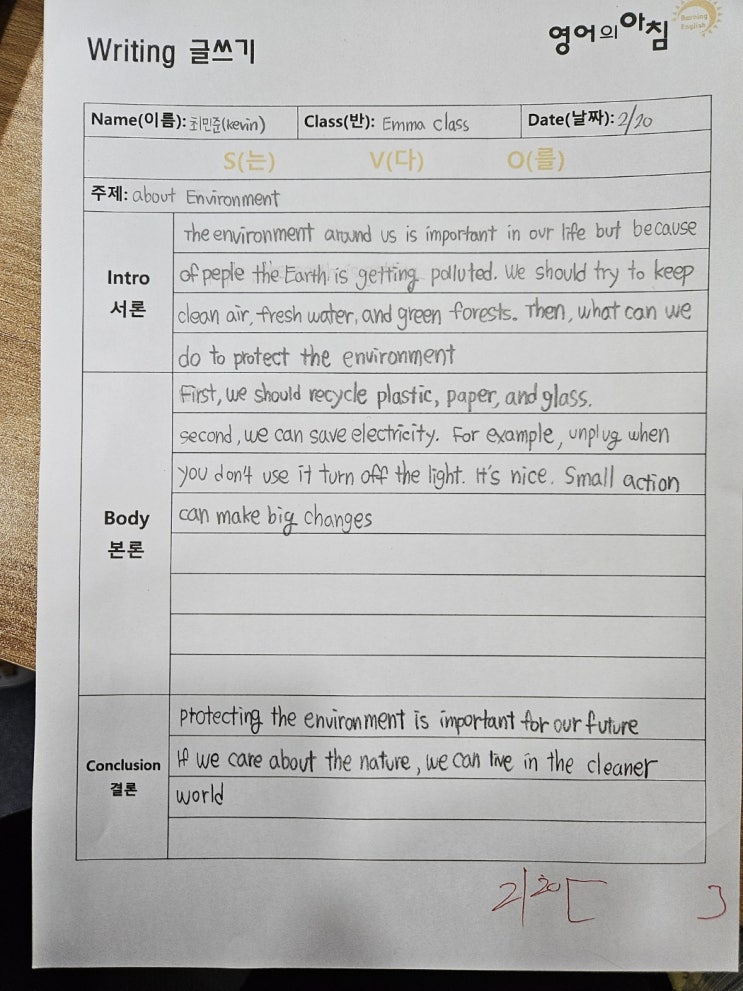 Writing 글쓰기
영어의아침
Burning English
Name(이름): 최민준(kevin) Class(반): Emma class Date(날짜): 2/20
S(는) V(다) O(를)
주제: about Environment
Intro
서론
the environment around us is important in our life but because
of peple the Earth is getting polluted. We should try to keep
clean air, fresh water, and green forests. Then, what can we
do to protect the environment
Body
본론
First, we should recycle plastic, paper, and glass.
second, we can save electricity. For example, unplug when
you don't use it turn off the light. It's nice. Small action
can make big changes
Conclusion
결론
protecting the environment is important for our future
If we care about the nature, we can live in the cleaner
world
2/20